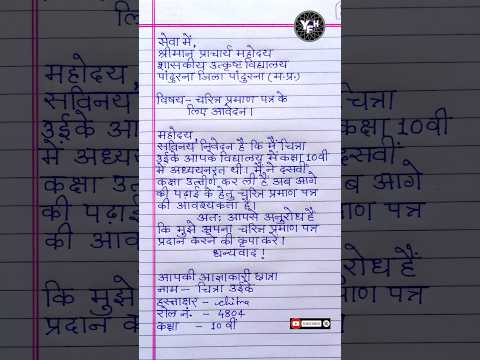 सेवा में,
श्रीमान प्राचार्य महोदय
शासकीय उत्कृष्ट विद्यालय
पांढुरना जिला पांढुरना (म.प्र.)
विषय- चरित्र प्रमाण पत्र के
लिए आवेदन।
महोदय,
सविनय निवेदन है कि मैं चित्रा
उईके आपके विद्यालय में कक्षा 10वीं
में अध्ययनरत थी। मैंने दसवीं
कक्षा उत्तीर्ण कर ली है अब आगे
की पढ़ाई के हेतु चरित्र प्रमाण पत्र
की आवश्यकता है।
अतः आपसे अनुरोध है
कि मुझे अपना चरित्र प्रमाण पत्र
प्रदान करने की कृपा करें।
धन्यवाद !
आपकी आज्ञाकारी छात्रा
नाम - चित्रा उईके
हस्ताक्षर - chitra
रोल नं. - 4804
कक्षा - 10 वीं